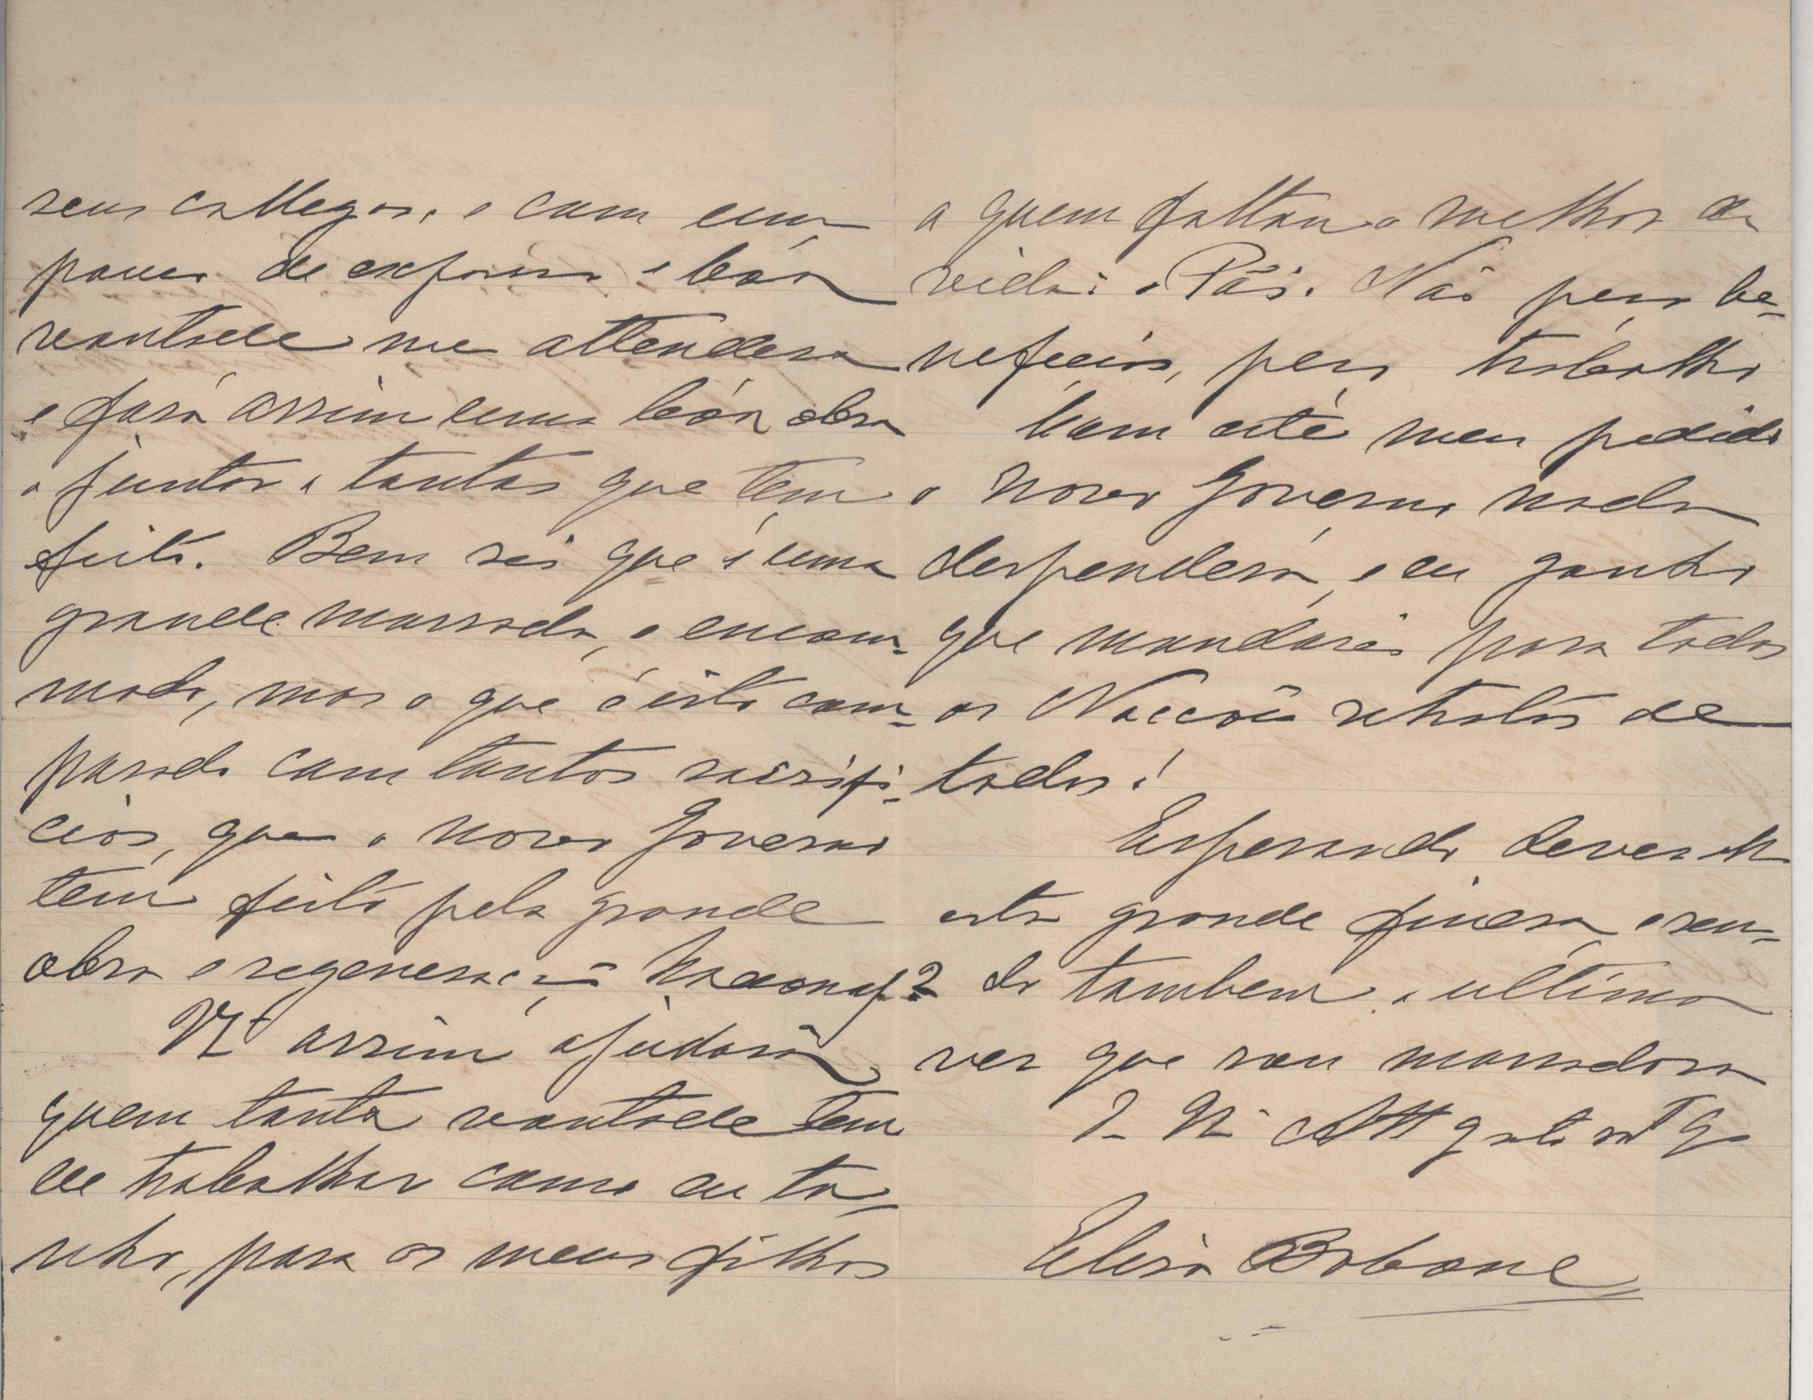 seus collegas, e com um
pouco de exforço e bôa
vontade me attenderá
e fará assim uma bôa obra
a juntar a tantas que tem
feito. Bem sei que é uma
grande massada, e encom-
modo, mas o que é isto com-
parado com tantos sacrifi-
cios, que o novo Governo
tem feito pela grande
obra e regeneração Nacional?
Vª assim ajudará
quem tanta vontade tem
de trabalhar como eu te-
nho, para os meus filhos
a quem faltou o melhor da
vida: o Páe. Não peço be-
neficios, peço trabalho
Com este meu pedido
o novo Governo nada
despenderá, e eu ganho
que mandarei para todas
as Nacções retratos de
todos!
Esperando dever-lhe
esta grande fineza, e sen-
do tambem a ultima
vez que sou massadora
D. Vª Attª
Elisa Bobone